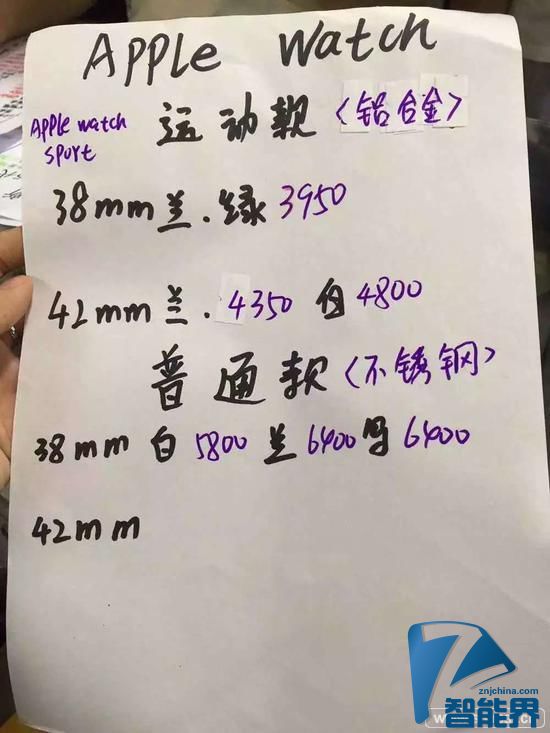 APPle Watch
Apple watch
sport
运动款〈铝合金〉
38mm 兰.绿 3950
42mm 兰.4350 白4800
普通款〈不锈钢〉
38mm 白 5800 兰 6400 6400
42mm
znjchina.com
智能界